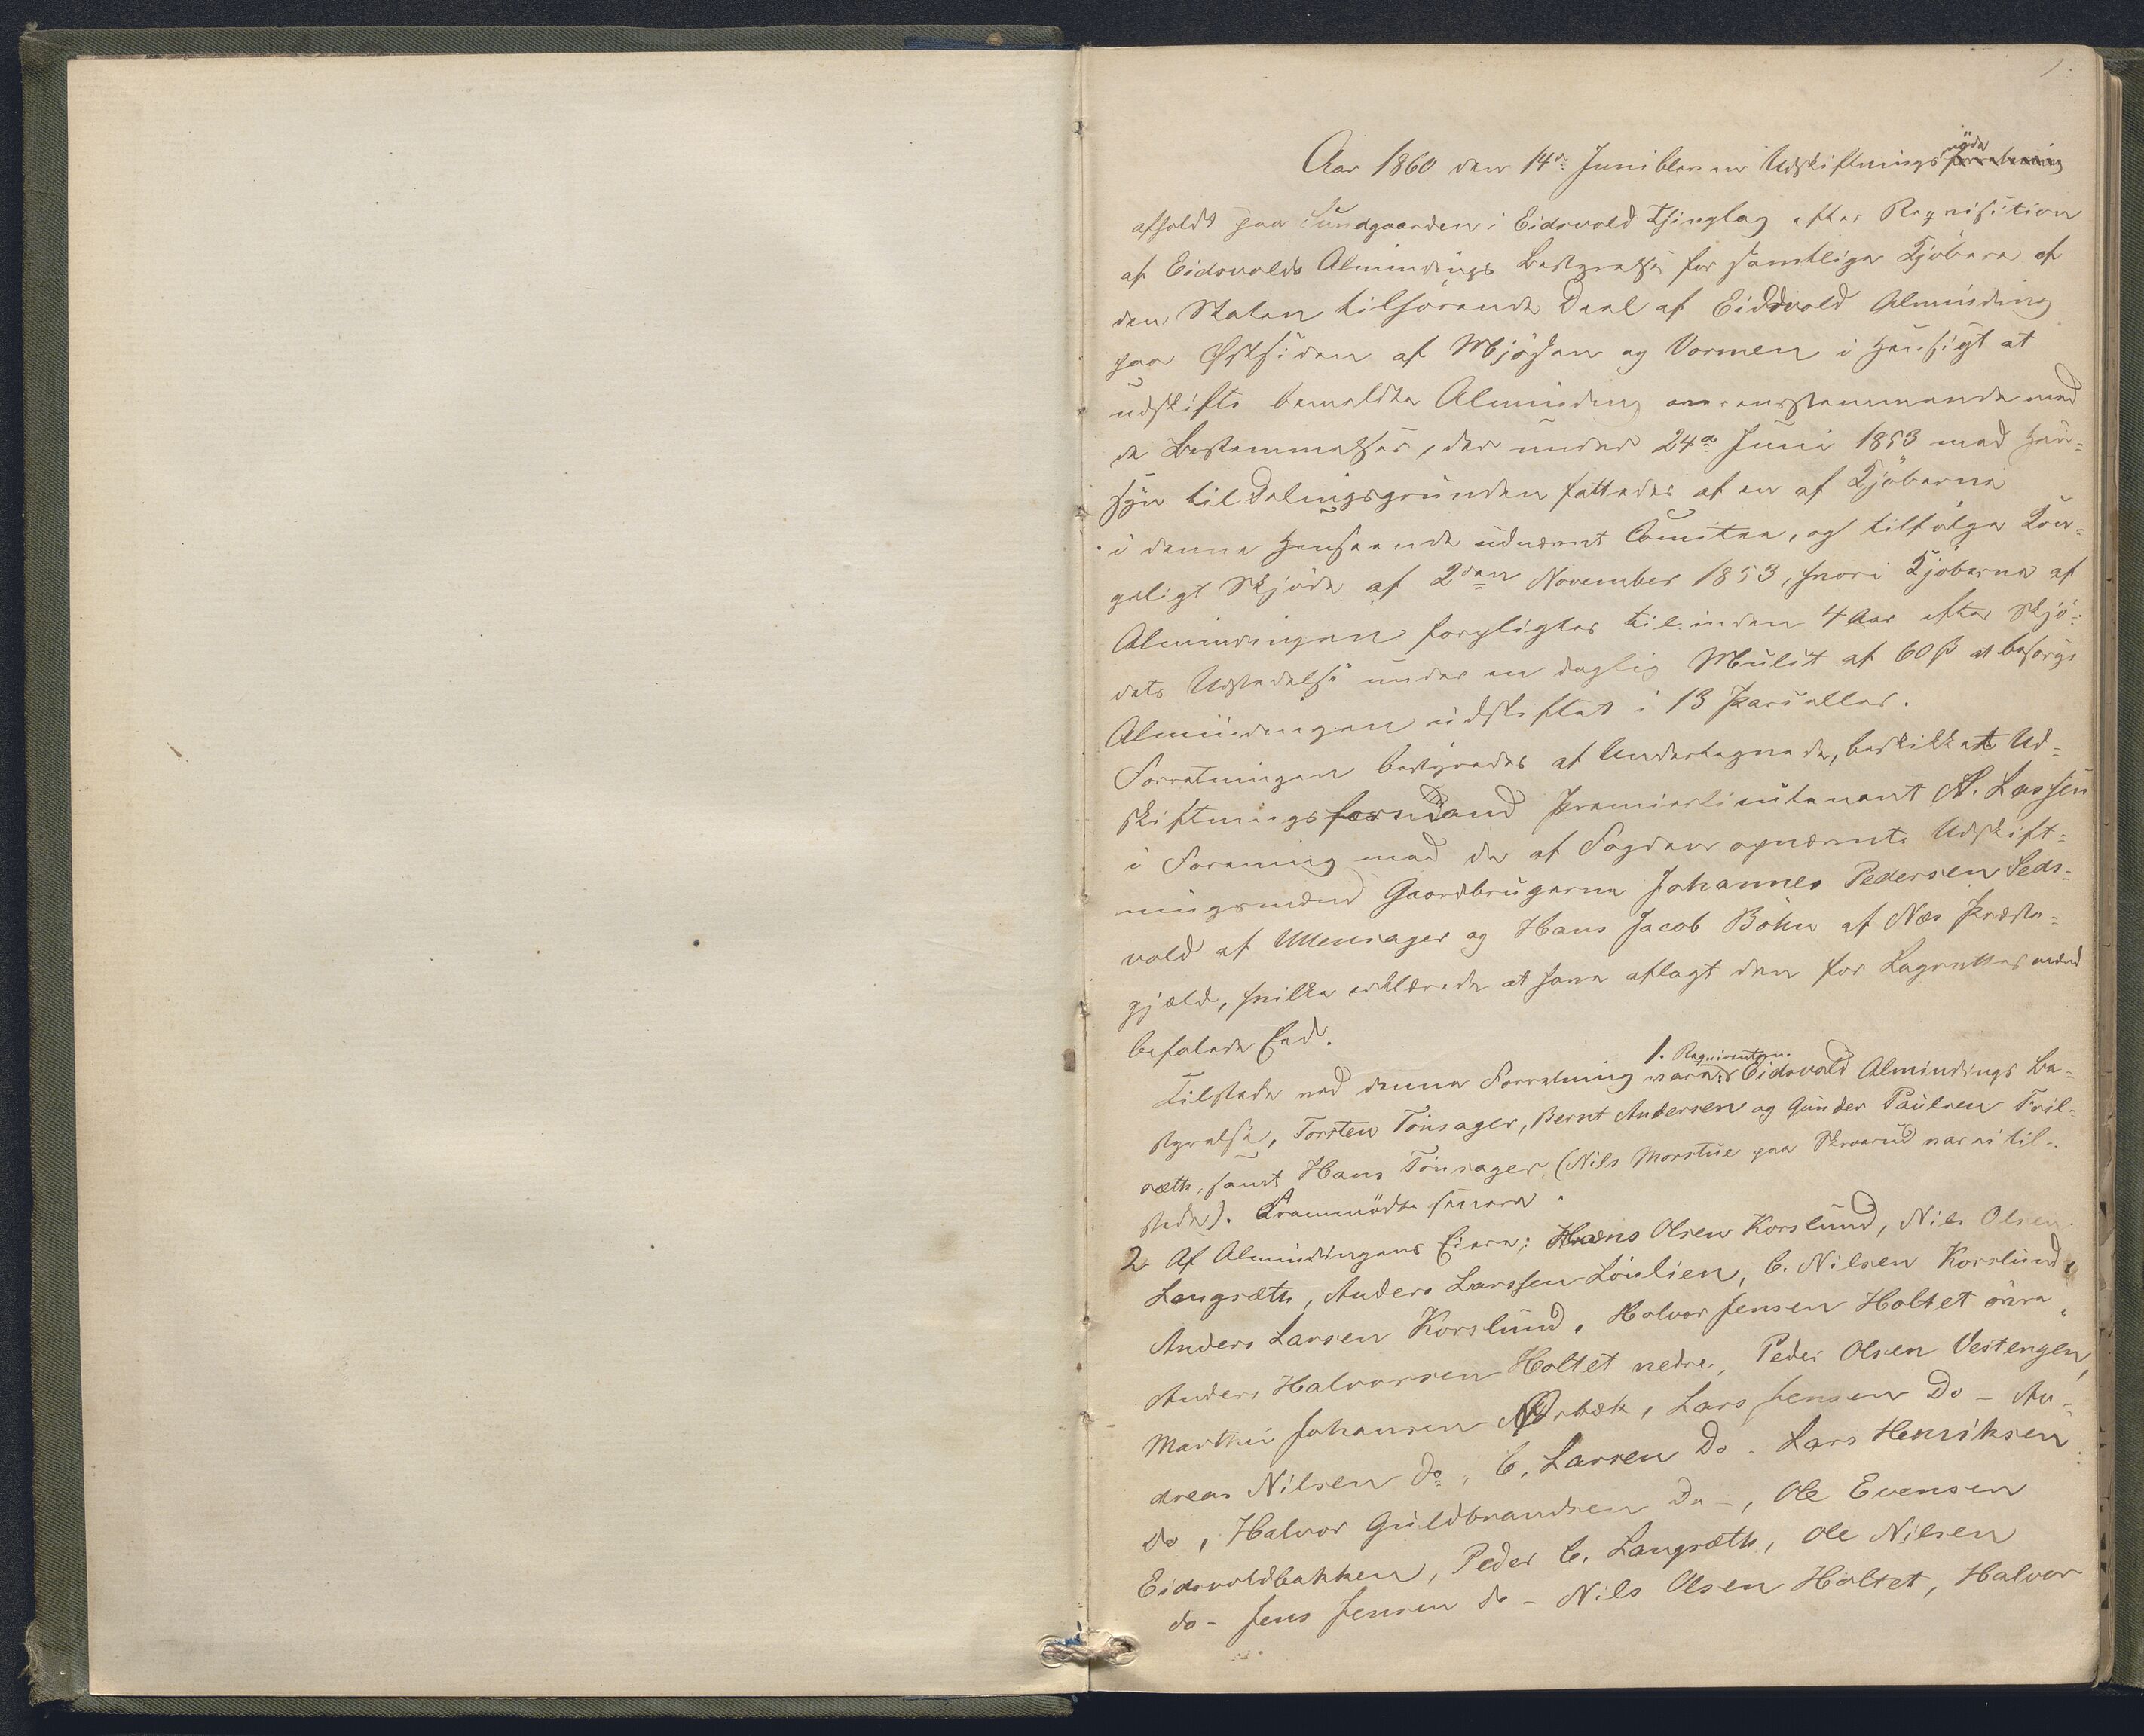 1.
Aar 1860 den 14de Juni blev en Udskiftnings møde forretning
afholdt paa Sundgaarden i Eidsvold Thinglag efter Reqvisition
af Eidsvolds Almindings Bestyrelse for samtlige Kjöbere af
den Staten tilhörende Deel af Eidsvold Alminding
paa Østsiden af Mjösen og Vormen i Hensigt at
udskifte bemeldte Alminding overensstemmende med
de Bestemmelser, der under 24de Juni 1853 med Hen-
syn til Delingsgrunden fattedes af en af Kjöberne
i denne Henseende udnævnt Comitee, og tilfölge Kon-
geligt Skjöde af 2den November 1853, hvori Kjöberne af
Almindingen forpligtes til inden 4 Aar efter Skjö-
dets Udstedelse under en daglig Mulct af 60 ß at besörge
Almindingen udskiftet i 13 Parceller.
Forretningen bestyredes af Undertegnede, beskikket Ud-
skiftningsformand Premierlieutenant A. Lassen
i Forening med de af Fogden opnævnte Udskift-
ningsmænd Gaardbrugerne Johannes Pedersen Leds-
vold af Ullensager og Hans Jacob Böhn af Næs Præste-
gjæld, hvilke erklærede at have aflagt den for Lagrettesmænd
befalede Eed.
Tilstede ved denne Forretning vare: 1. Reqvirenten. Eidsvold Almindings Be-
styrelse, Torsten Tönsager, Bernt Andersen og Gunder Paulsen Tril-
sæth, samt Hans Tönsager (Nils Morstue paa Skraarud var ei til-
stede). Fremmödte senere.
2 Af Almindingens Eiere: Hans Olsen Korslund, Nils Olsen
Langsæth, Anders Larssen Lönlien, C. Nilsen Korslund,
Anders Larsen Korslund, Halvor Jensen Holtet övre,
Anders Halvorsen Holtet nedre, Peder Olsen Vestengen,
Marthin Johansen Ørbæk, Lars Jensen Do - An-
dreas Nilsen do, C. Larsen Do - Lars Henriksen
do, Halvor Guldbrandsen Do -, Ole Evensen
Eidsvoldbakken, Peder C. Langsæth, Ole Nilsen
do - Jens Jensen do - Nils Olsen Holtet, Halvor